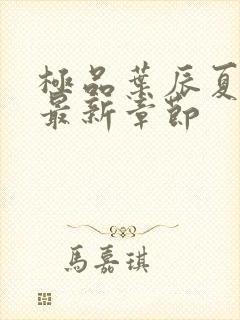 極品葉辰夏
最新章節
馬嘉琪